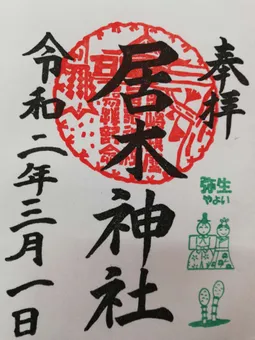 奉拝
弥生
やよい
居木神社
令和二年三月一日